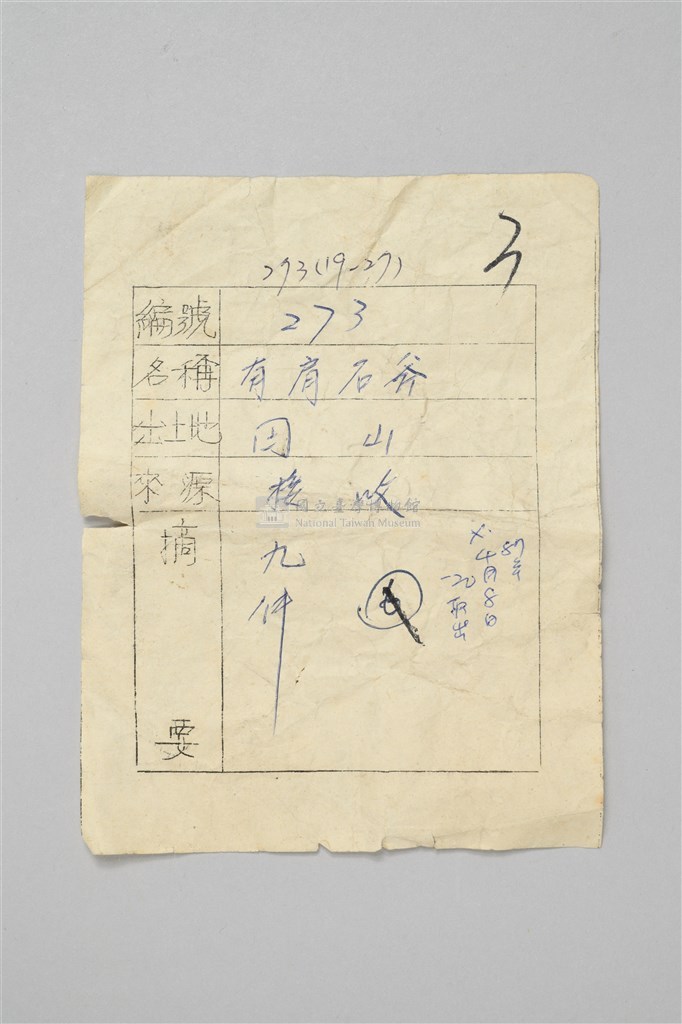 273(19-27)
編號 273
名稱 有肩石斧
出土地 圓山
來源 接收
摘要 九件
4月8日
取出
國立臺灣博物館
National Taiwan Museum